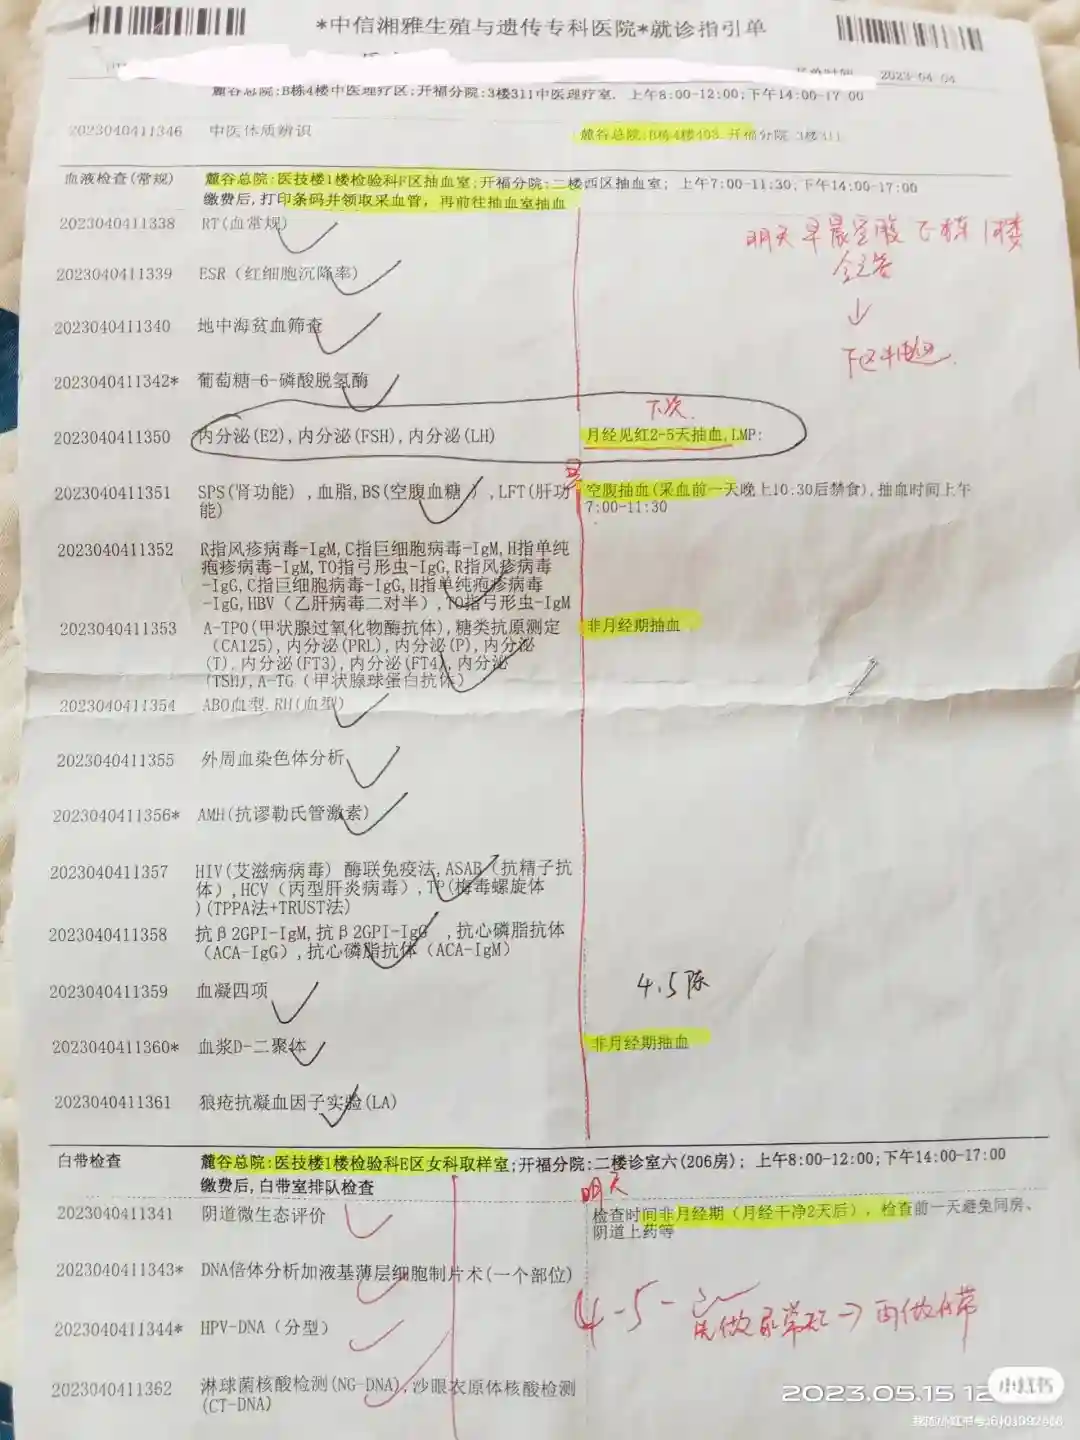 *中信湘雅生殖与遗传专科医院*就诊指引单
2023-04-04
麓谷总院:B栋4楼中医理疗区;开福分院:3楼311中医理疗室. 上午8:00-12:00;下午14:00-17:00
2023040411346 中医体质辨识 麓谷总院:B栋4楼403 开福分院 3楼311
血液检查(常规) 麓谷总院:医技楼1楼检验科F区抽血室;开福分院:二楼西区抽血室; 上午7:00-11:30;下午14:00-17:00
缴费后,打印条码并领取采血管，再前往抽血室抽血
2023040411338 RT(血常规)
明天早晨空腹 1楼
2023040411339 ESR（红细胞沉降率)
2023040411340 地中海贫血筛查
↓
2023040411342* 葡萄糖-6-磷酸脱氢酶
下次.
2023040411350 内分泌(E2),内分泌(FSH),内分泌(LH) 月经见红2-5天抽血,LMP:
2023040411351 SPS(肾功能) ,血脂,BS(空腹血糖 ),LFT(肝功 空腹抽血(采血前一天晚上10:30后禁食),抽血时间上午
能) 7:00-11:30
2023040411352 R指风疹病毒-IgM,C指巨细胞病毒-IgM,H指单纯
疱疹病毒-IgM,TO指弓形虫-IgG,R指风疹病毒
-IgG,C指巨细胞病毒-IgG,H指单纯疱疹病毒
-IgG,HBV（乙肝病毒二对半）,TO指弓形虫-IgM
2023040411353 A-TPO(甲状腺过氧化物酶抗体),糖类抗原测定 非月经期抽血
（CA125),内分泌(PRL),内分泌(P),内分泌
(T),内分泌(FT3),内分泌(FT4),内分泌
(TSH),A-TG（甲状腺球蛋白抗体）
2023040411354 ABO血型,RH(血型)
2023040411355 外周血染色体分析
2023040411356* AMH(抗谬勒氏管激素)
2023040411357 HIV(艾滋病病毒) 酶联免疫法,ASAB（抗精子抗
体）,HCV（丙型肝炎病毒）,TP(梅毒螺旋体
)(TPPA法+TRUST法)
2023040411358 抗β2GPI-IgM,抗β2GPI-IgG ,抗心磷脂抗体
（ACA-IgG）,抗心磷脂抗体（ACA-IgM）
2023040411359 血凝四项 4.5陈
2023040411360* 血浆D-二聚体 非月经期抽血
2023040411361 狼疮抗凝血因子实验(LA)
白带检查 麓谷总院:医技楼1楼检验科E区女科取样室;开福分院:二楼诊室六(206房); 上午8:00-12:00;下午14:00-17:00
缴费后,白带室排队检查
明天
2023040411341 阴道微生态评价 检查时间非月经期（月经干净2天后），检查前一天避免同房、
阴道上药等
2023040411343* DNA倍体分析加液基薄层细胞制片术(一个部位)
4-5- 先做尿常规→再做白带
2023040411344* HPV-DNA（分型）
2023040411362 淋球菌核酸检测(NG-DNA),沙眼衣原体核酸检测
(CT-DNA)
2023.05.15 12
小红书